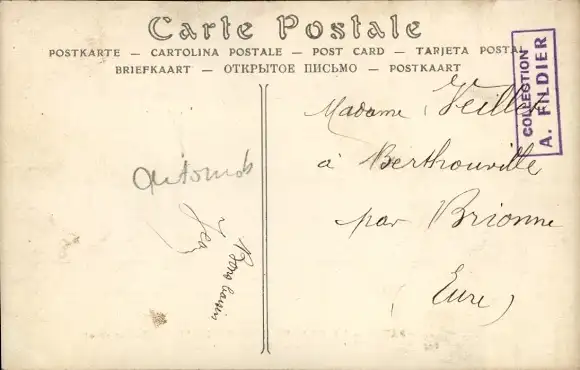 Carte Postale
POSTKARTE — CARTOLINA POSTALE — POST CARD — TARJETA POSTAL
BRIEFKAART — ОТКРЫТОЕ ПИСЬМО — POSTKAART
COLLECTION
A. FILDIER
Madame Veillet
à Berthouville
par Brionne
(Eure)
Automob